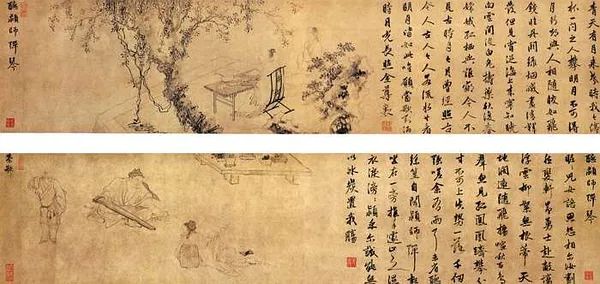 青天有月來幾時我今停
杯一問之人攀明月不可得
月行卻與人相隨皎如飛
鏡臨丹闕綠煙滅盡清輝
發但見宵從海上來寧知曉
向雲間沒白兔搗藥秋復春
嫦娥孤栖與誰鄰今人不
見古時月今月曾經照古
人今人古人若流水共看
明月皆如此唯願當歌對酒
時月光長照金尊裏
聽穎師彈琴
聽穎師彈琴
昵昵兒女語恩怨相爾汝劃
然變軒昂勇士赴敵場
浮雲柳絮無根蒂天
地闊遠隨飛揚喧啾百鳥
群忽見孤鳳凰躋攀分
寸不可上失勢一落千丈
強嗟余有兩耳未省聽
絲篁自聞穎師彈起
坐在一旁推手遽止之濕
衣淚滂滂穎乎爾誠能無
以冰炭置我腸
茶歌